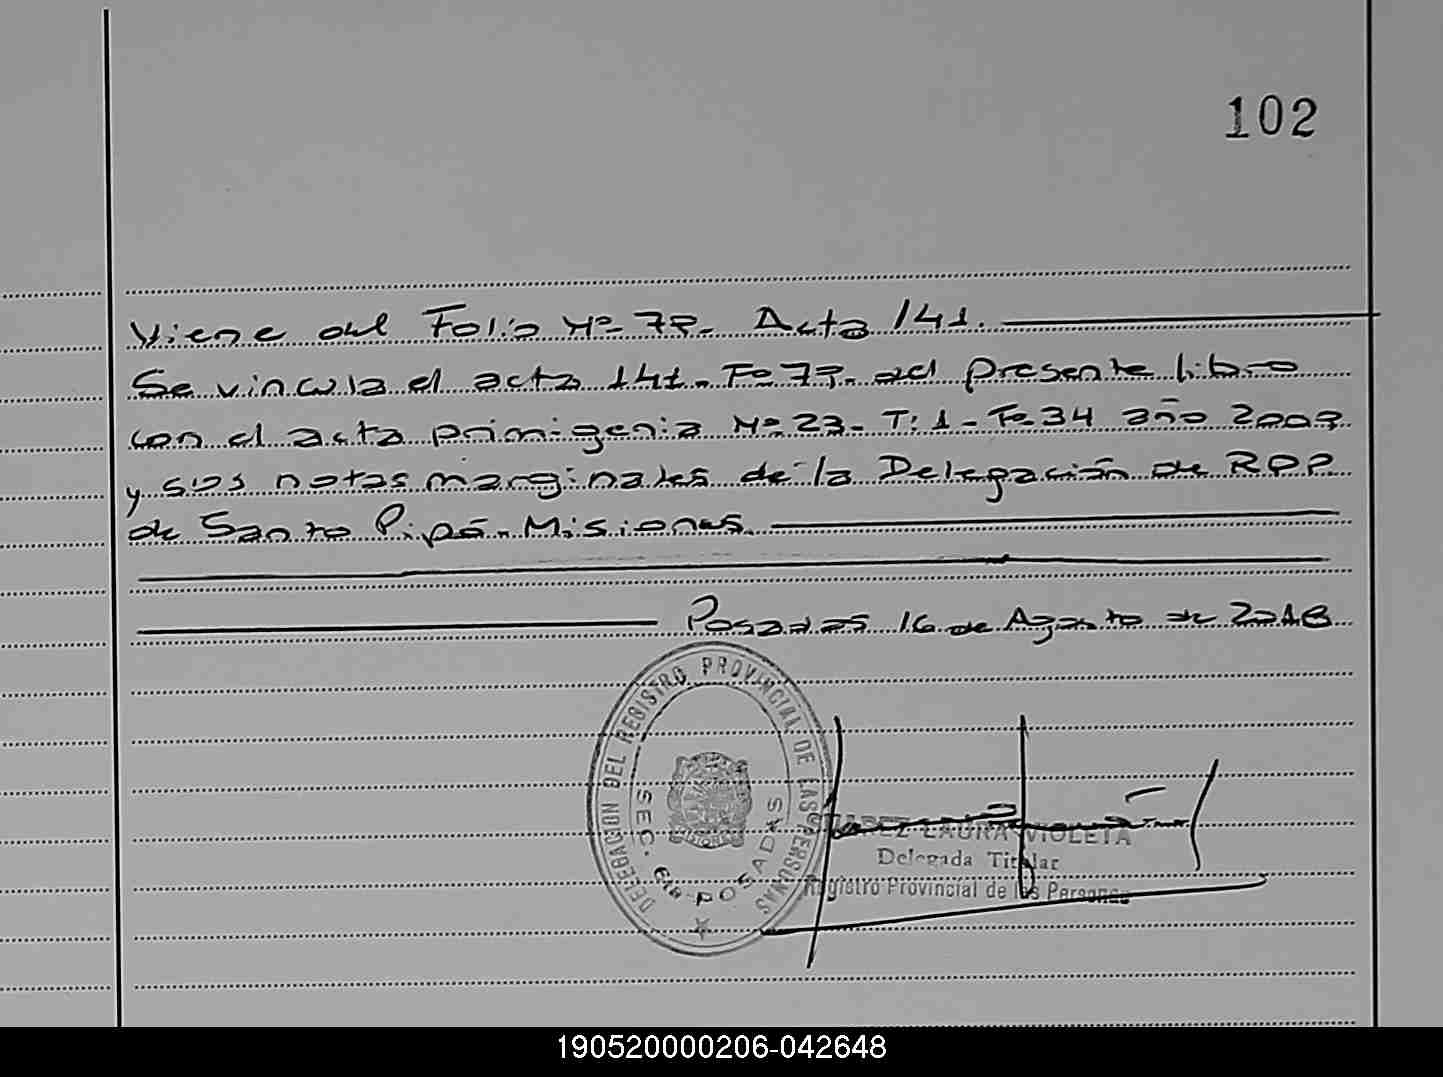 102
Viene del Folio Nº 7
Acta 141.
Se vincula el acta 141 - Fº 7
del presente libro
con el acta primigenia Nº 23 - T: 1 - Fº 34 año 2007
y sus notas marginales de la Delegación de RPP
de Santo Pipó - Misiones.
Posadas 16 de Agosto de 2018
DELEGACION DEL REGISTRO PROVINCIAL DE LAS PERSONAS
SEC. 6ta POSADAS
LAURA VIOLETA
Delegada Titular
Registro Provincial de las Personas
190520000206-042648